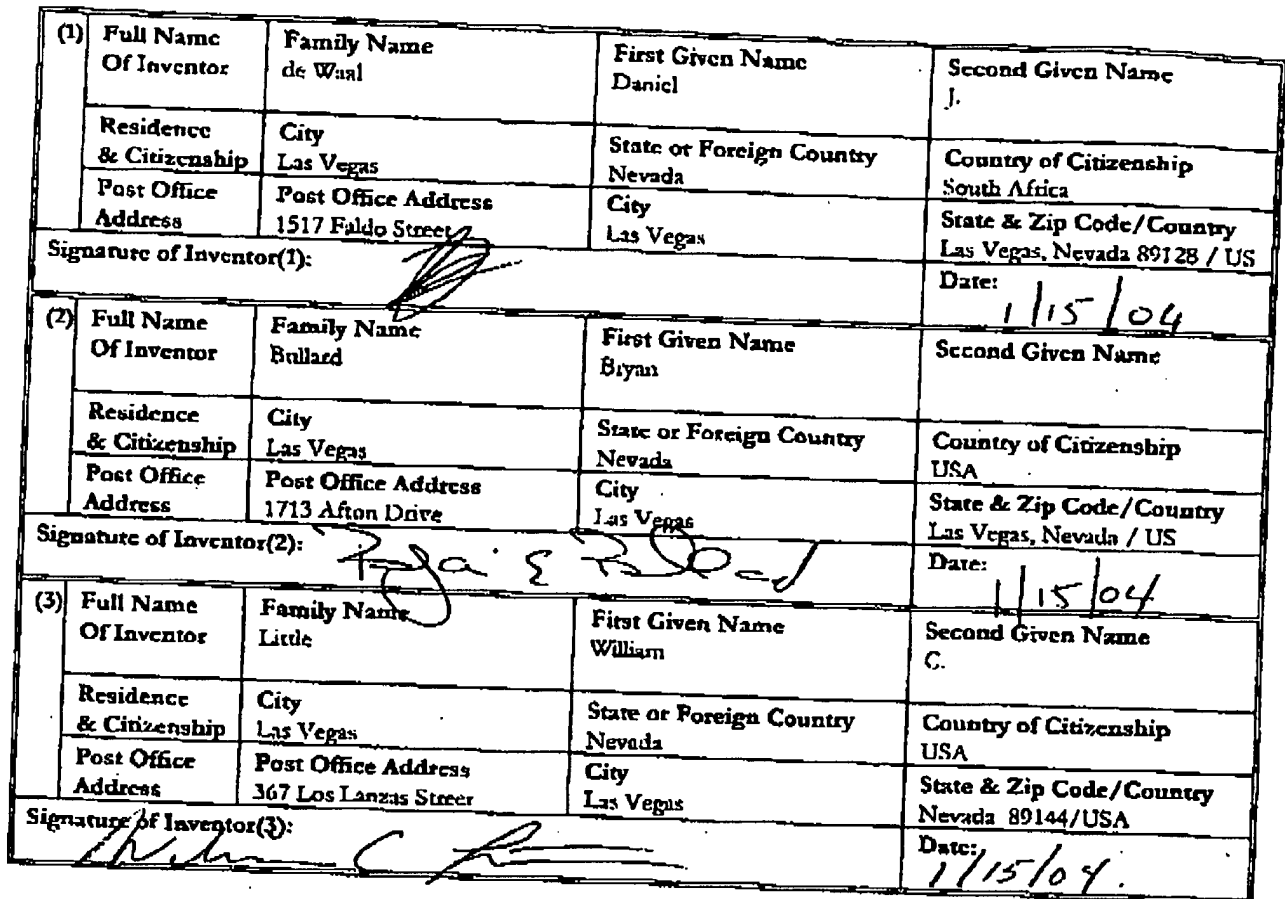 (1) Full Name Of Inventor
Family Name
de Waal
First Given Name
Daniel
Second Given Name
J.
Residence & Citizenship
City
Las Vegas
State or Foreign Country
Nevada
Country of Citizenship
South Africa
Post Office Address
Post Office Address
1517 Faldo Street
City
Las Vegas
State & Zip Code/Country
Las Vegas, Nevada 89128 / US
Signature of Inventor(1):
Date:
1/15/04
(2) Full Name Of Inventor
Family Name
Bullard
First Given Name
Bryan
Second Given Name
Residence & Citizenship
City
Las Vegas
State or Foreign Country
Nevada
Country of Citizenship
USA
Post Office Address
Post Office Address
1713 Afton Drive
City
Las Vegas
State & Zip Code/Country
Las Vegas, Nevada / US
Signature of Inventor(2):
Date:
1/15/04
(3) Full Name Of Inventor
Family Name
Little
First Given Name
William
Second Given Name
C.
Residence & Citizenship
City
Las Vegas
State or Foreign Country
Nevada
Country of Citizenship
USA
Post Office Address
Post Office Address
367 Los Lanzas Street
City
Las Vegas
State & Zip Code/Country
Nevada 89144/USA
Signature of Inventor(3):
Date:
1/15/04.